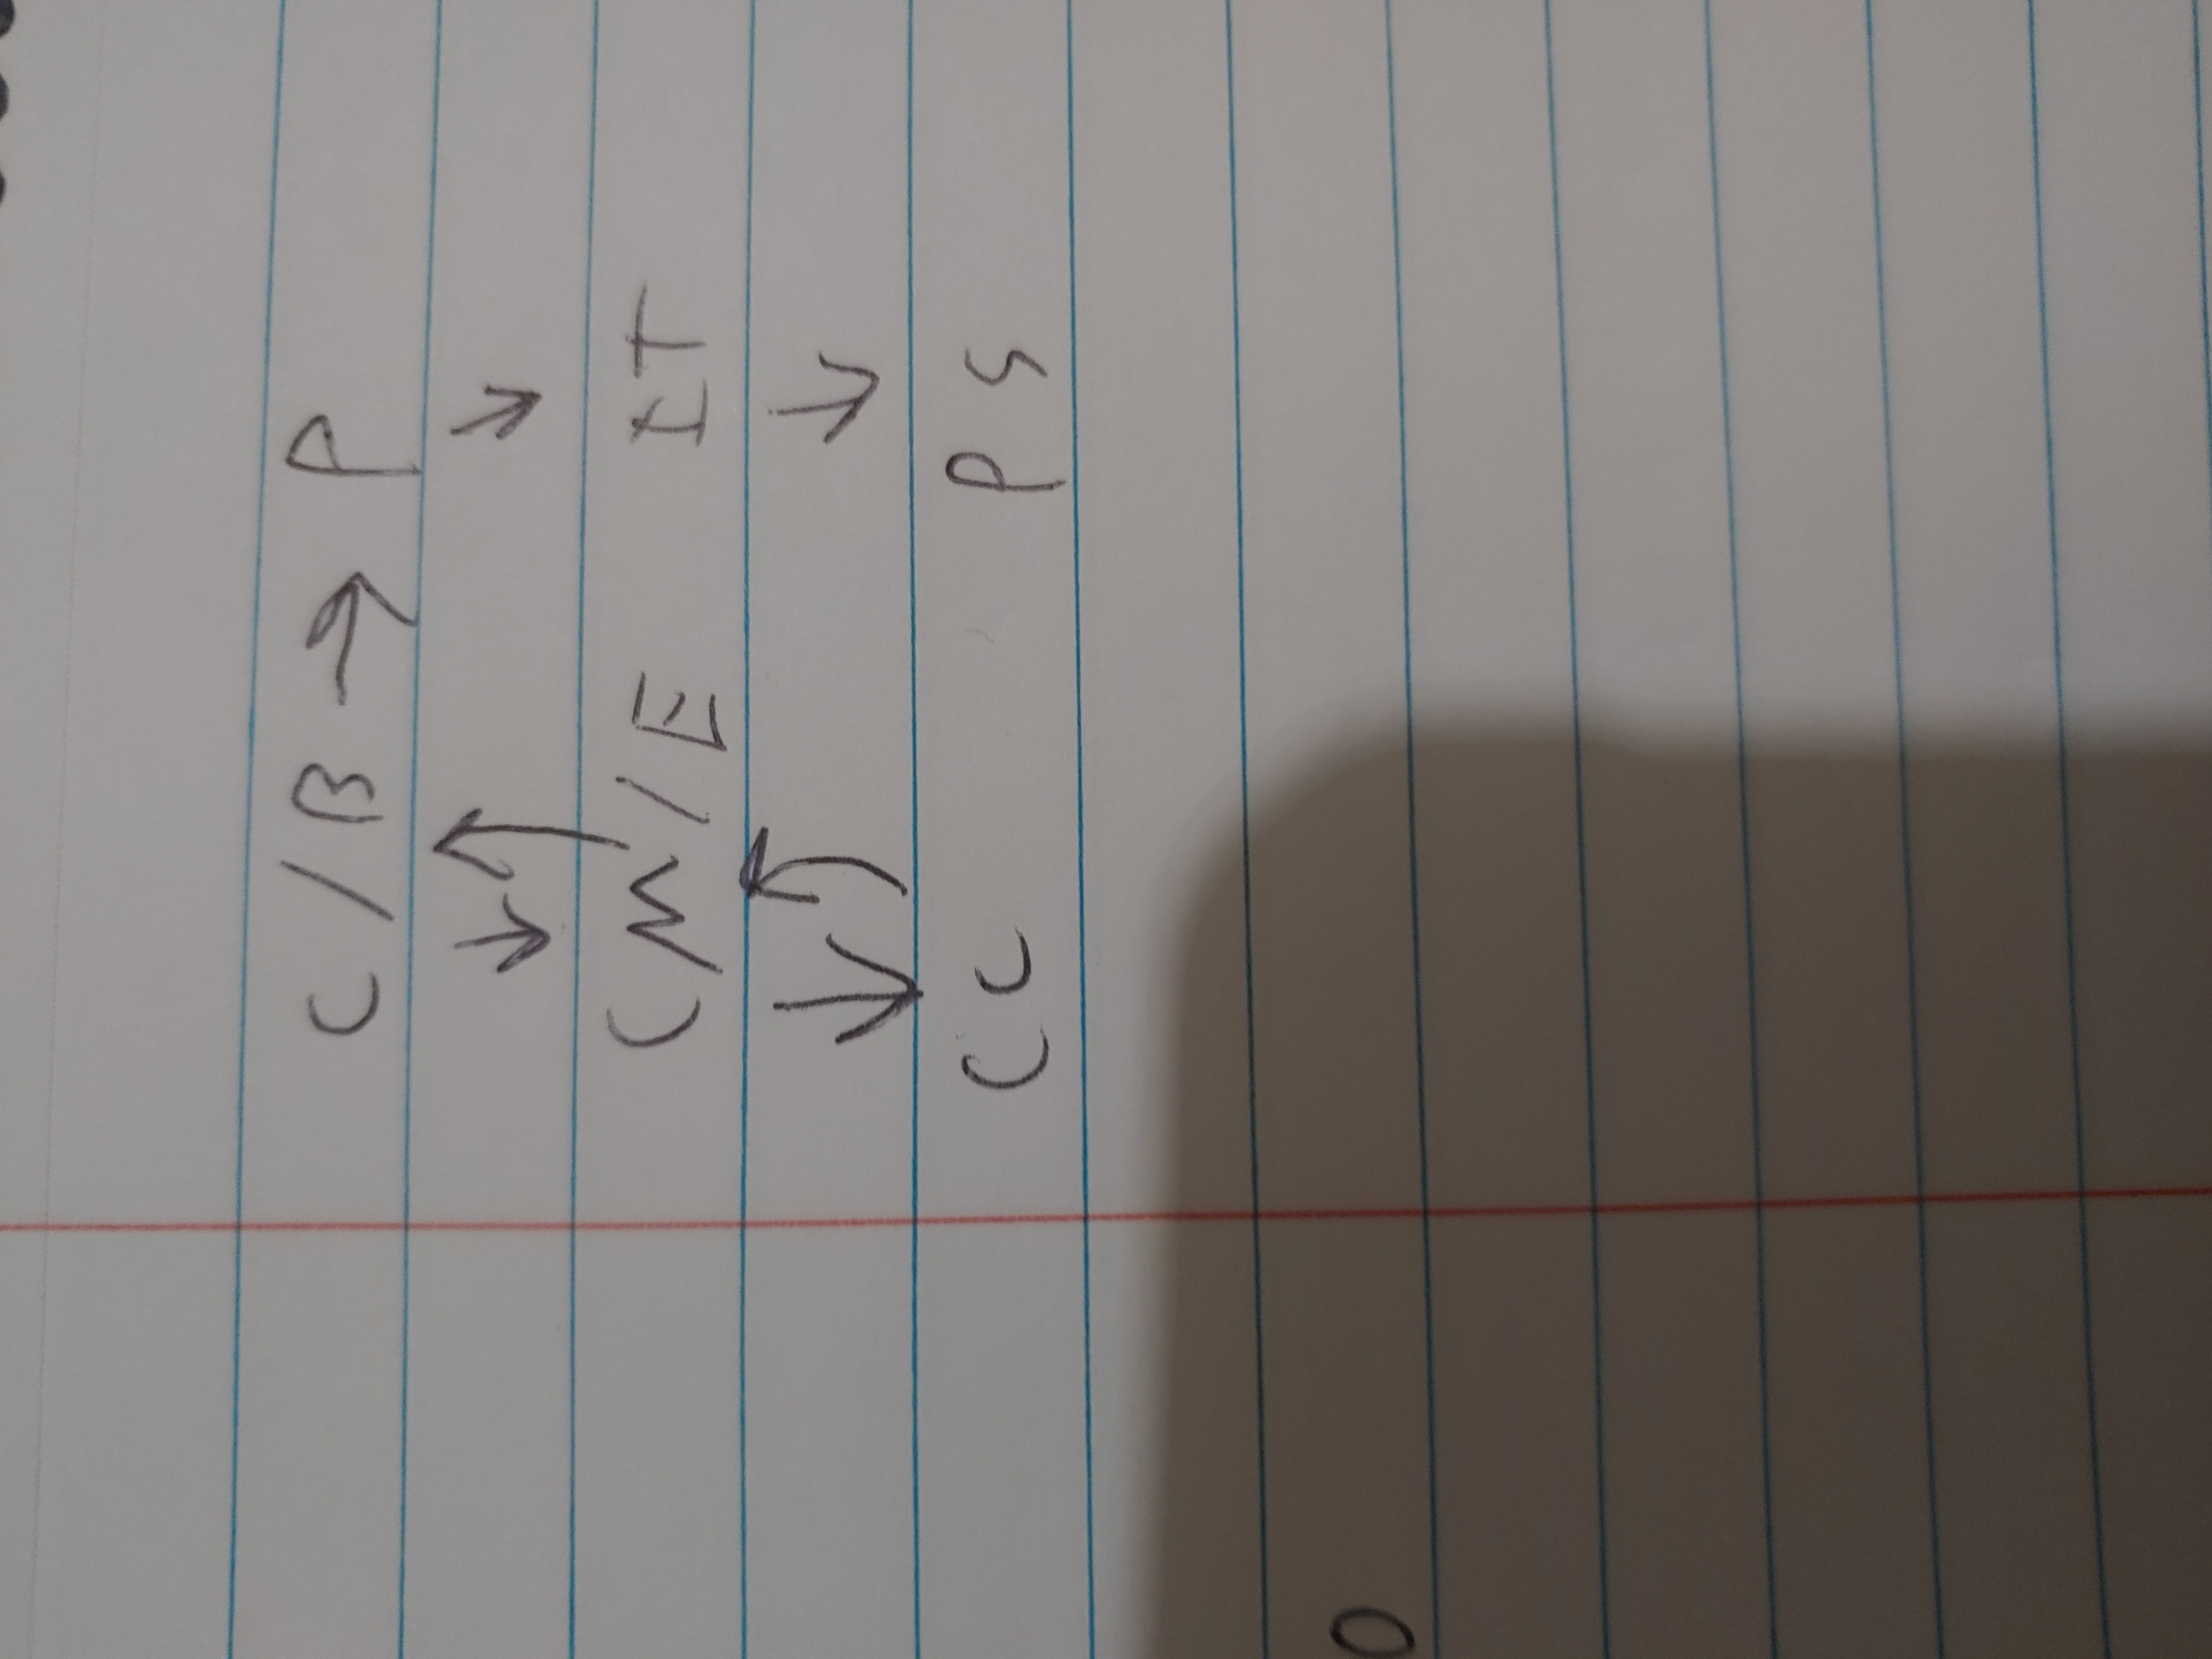 C / B → P
↓ ↑ ↓
CM / E IT
↓ ↑ ↓
CC PS
0